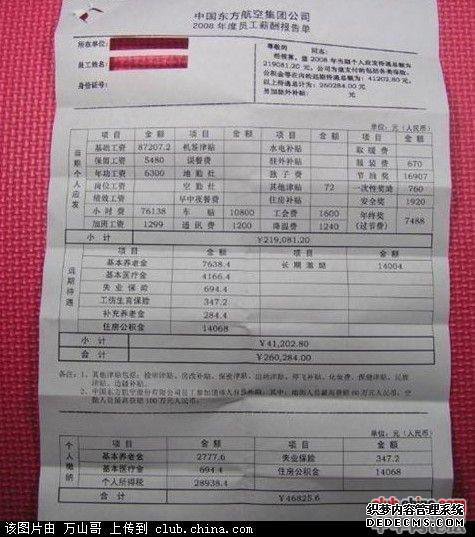 中国东方航空集团公司
2008 年度员工薪酬报告单
所在单位:
员工姓名:
身份证号:
尊敬的 同志:
经核算, 您 2008 年当期个人应发待遇总额为
219081.20 元, 公司为您支付的包括各类保险、
公积金等在内的远期待遇总额为: 41202.80 元,
以上待遇总计为: 260284.00 元
另加驻外补贴: 元
单位: 元 (人民币)
当期个人应发
项 目 金 额 项 目 金 额 项 目 金 额 项 目 金 额
基础工资 87207.2 机签津贴 水电补贴 取 暖 费
保留工资 5480 误餐费 驻外补贴 服 装 费 670
年功工资 6300 地 勤 灶 独 子 费 节 油 奖 16907
岗位工资 空 勤 灶 其他津贴 72 一次性奖励 760
绩效工资 早中夜餐费 住房补贴 安全奖 1920
小 时 费 76138 车 贴 10800 工会费 1600 年终奖 (过节费) 7488
加班工资 1299 通 讯 费 1200 降温费 1240
小 计 ¥219,081.20
远期待遇
项 目 金 额 项 目 金 额
基本养老金 7638.4 长 期 激 励 14004
基本医疗金 4166.4
失 业 保 险 694.4
工伤生育保险 347.2
补充养老金 284.4
住房公积金 14068
小 计 ¥41,202.80
合 计 ¥260,284.00
备注: 1、其他津贴包括:
2、中国东方航空股份有限公司员工
单位: 元 (人民币)
个人缴纳
项 目 金 额 项 目 金 额
基本养老金 2777.6 失业保险 347.2
基本医疗金 694.4 住房公积金 14068
个人所得税 28938.4
合 计 ¥46825.6
该图片由 万山哥 上传到 club.china.com